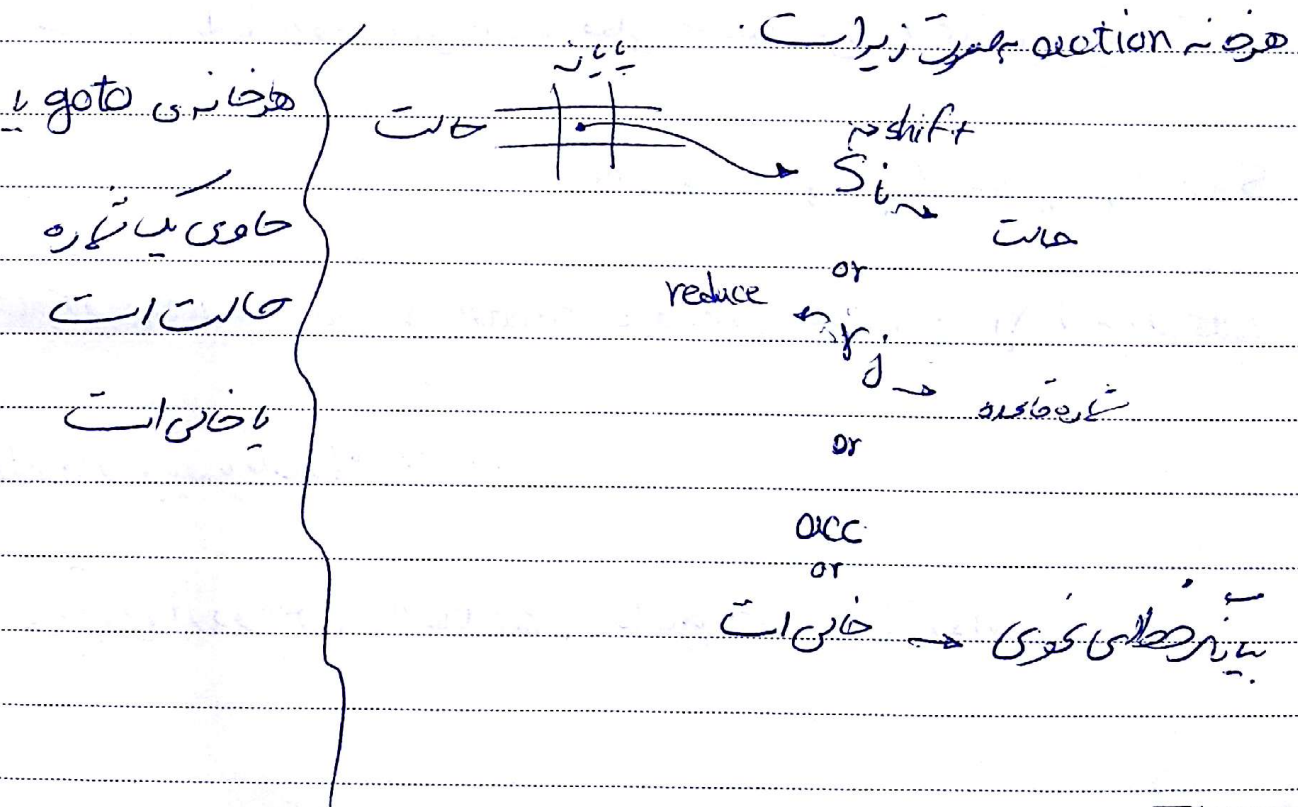 هر خانه action بصورت زیر است.
پایانه
حالت
shift
Si
حالت
or
reduce
rj
شماره قاعده
or
acc
or
خالی است → بیانگر خطای نحوی
هر خانه‌ی goto یا
حاوی یک شماره
حالت است
یا خالی است